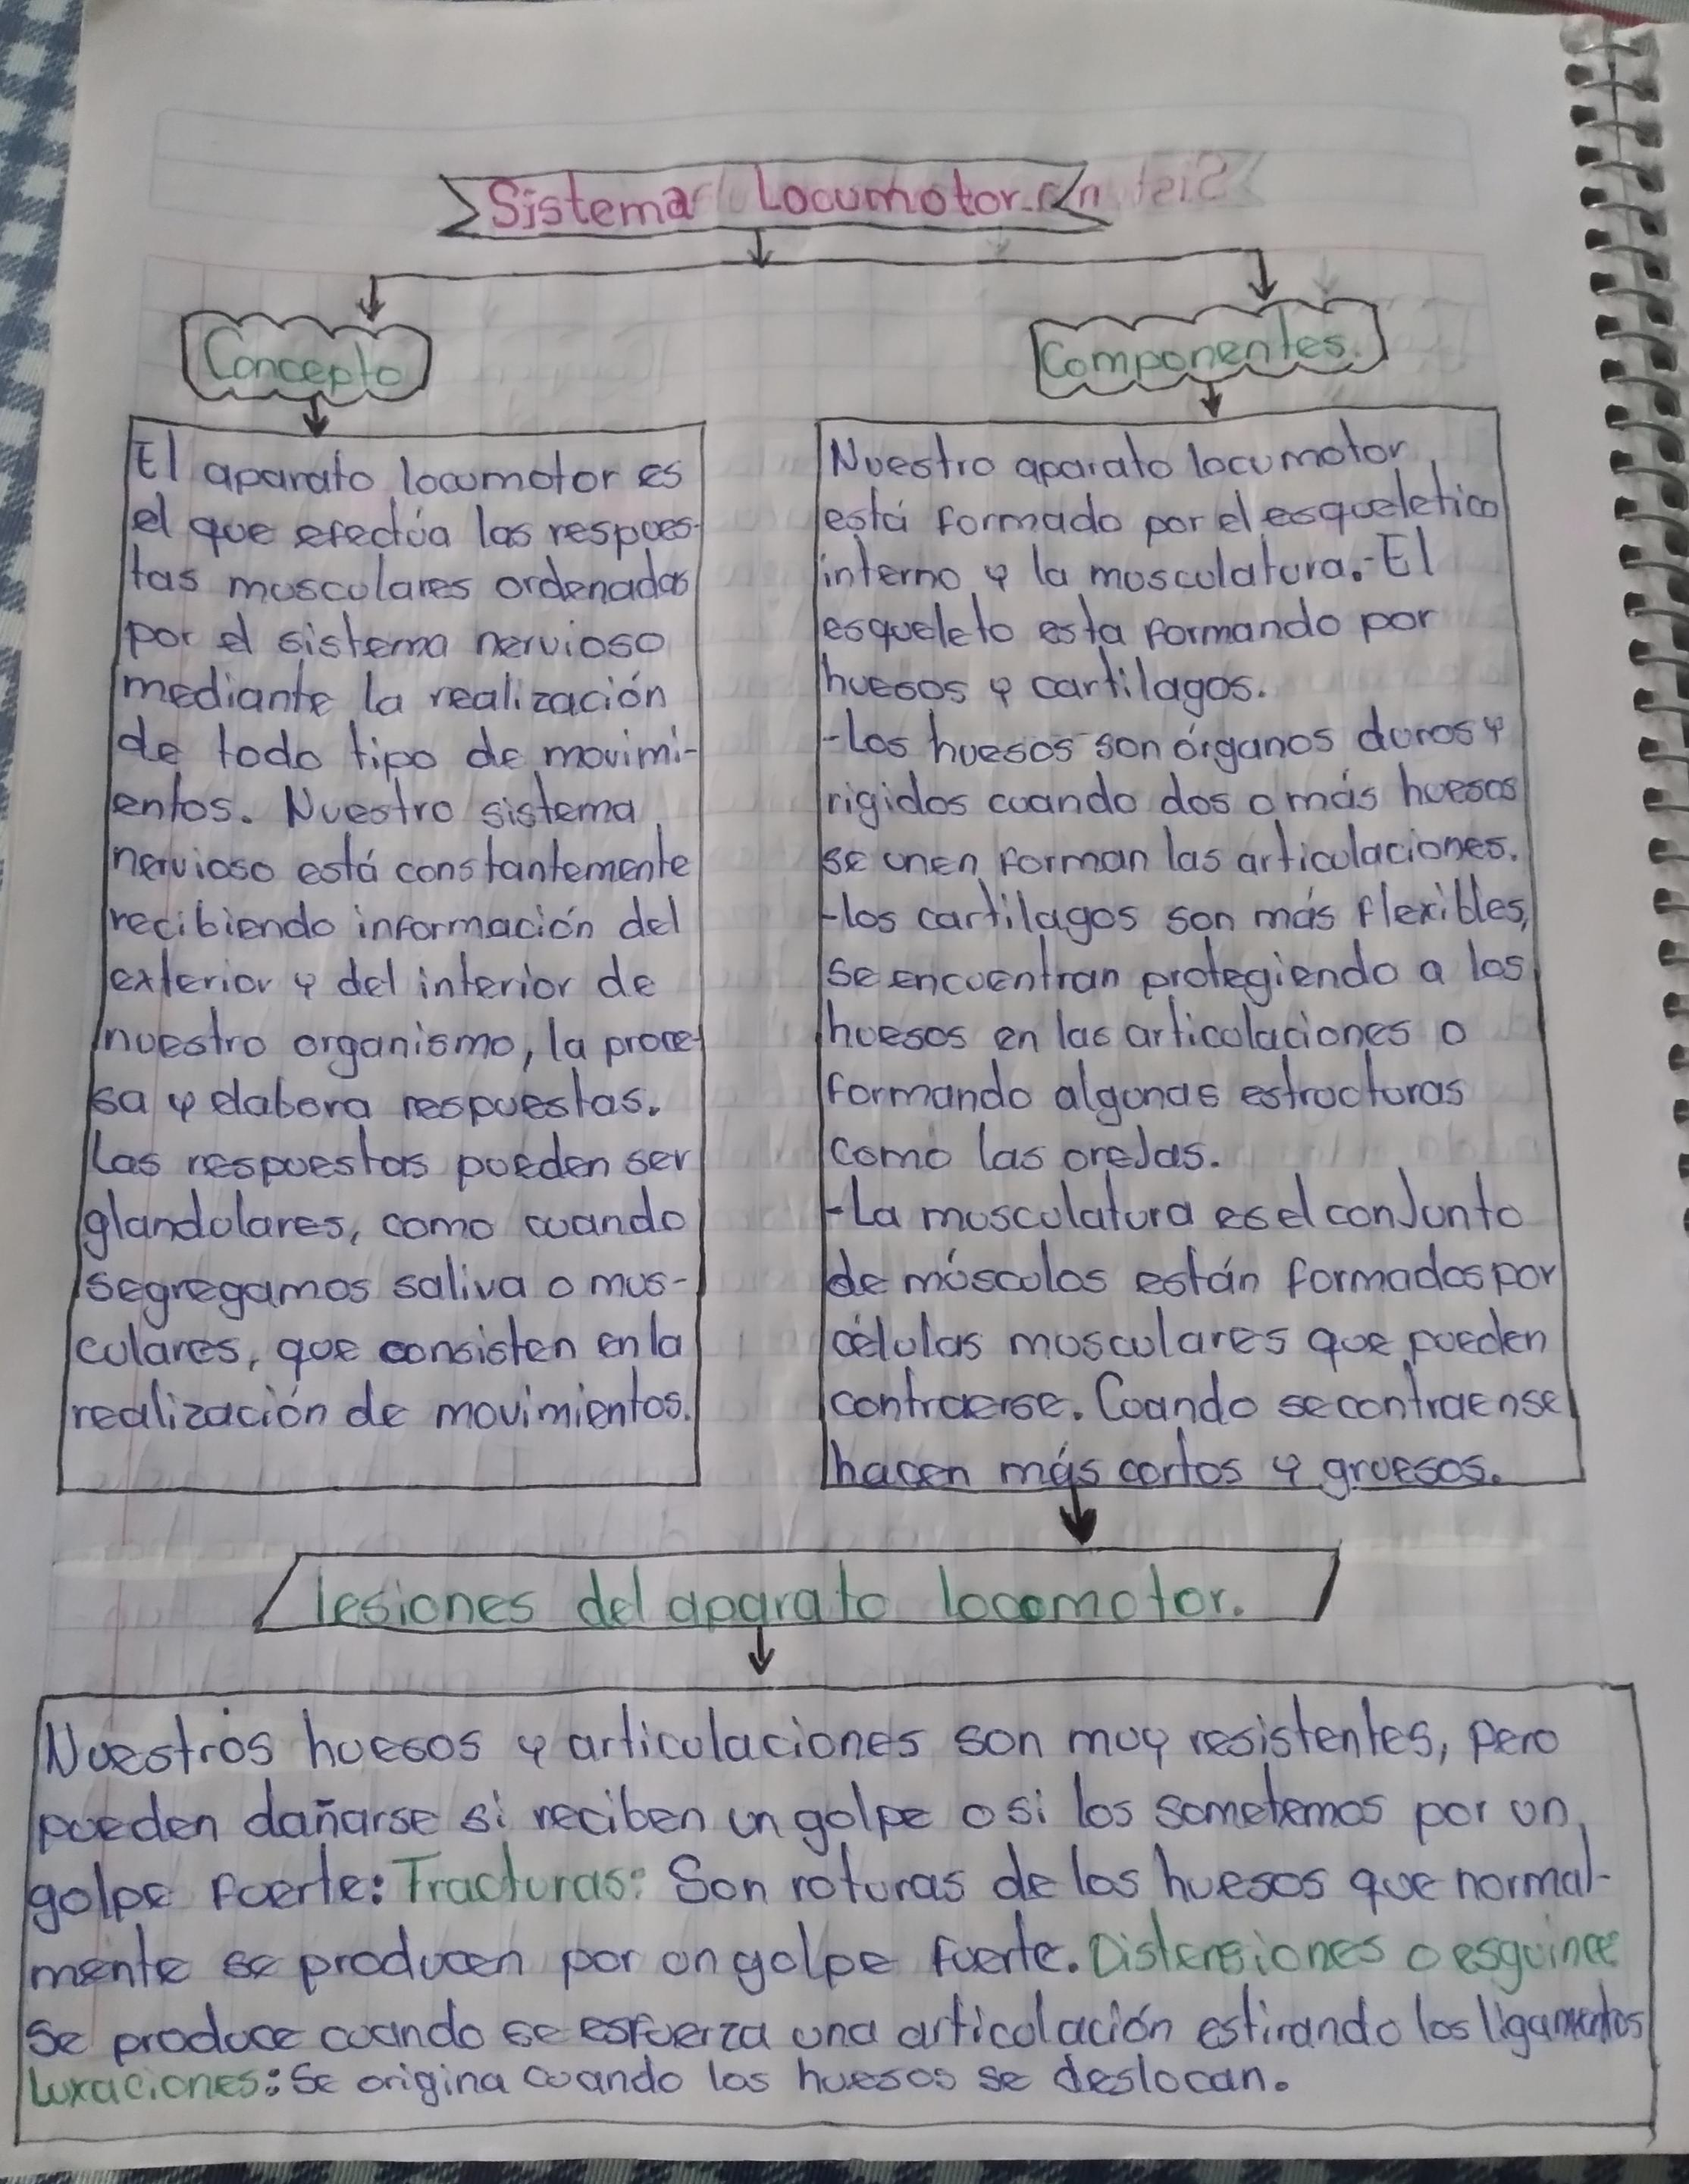 Sistema Locumotor.
Concepto
El aparato locumotor es
el que efectúa las respues-
tas musculares ordenadas
por el sistema nervioso
mediante la realización
de todo tipo de movimi-
entos. Nuestro sistema
nervioso está constantemente
recibiendo información del
exterior y del interior de
nuestro organismo, la proce-
sa y elabora respuestas.
Las respuestas pueden ser
glandulares, como cuando
segregamos saliva o mus-
culares, que consisten en la
realización de movimientos.
Componentes.
Nuestro aparato locumotor
está formado por el esqueletico
interno y la musculatura.-El
esqueleto esta formando por
huesos y cartilagos.
-Los huesos son órganos duros y
rigidos cuando dos o más huesos
se unen forman las articulaciones.
-los cartilagos son más flexibles,
se encuentran protegiendo a los
huesos en las articulaciones o
formando algunas estructuras
como las orejas.
-La musculatura es el conjunto
de músculos están formados por
células musculares que pueden
contraerse. Cuando se contraen se
hacen más cortos y gruesos.
lesiones del aparato locomotor.
Nuestros huesos y articulaciones son muy resistentes, pero
pueden dañarse si reciben un golpe o si los sometemos por un
golpe fuerte: Fracturas: Son roturas de los huesos que normal-
mente se producen por un golpe fuerte. Distensiones o esguince
Se produce cuando se esfuerza una articulación estirando los ligamentos
Luxaciones: Se origina cuando los huesos se deslocan.